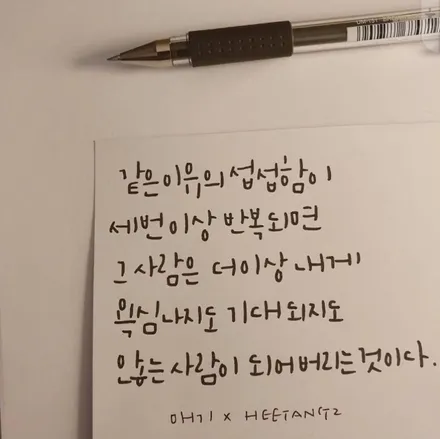 같은 이유의 섭섭함이
세번 이상 반복되면
그 사람은 더이상 내게
욕심나지도 기대되지도
않는 사람이 되어버리는 것이다.